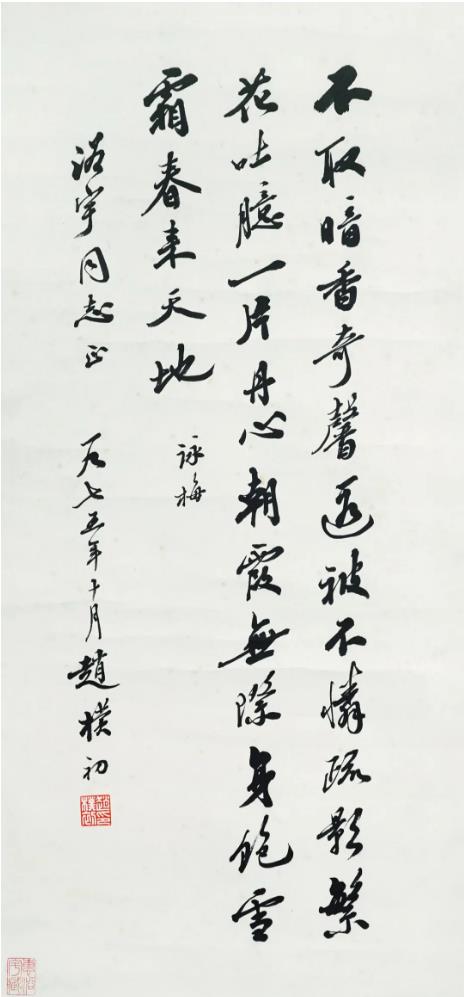 不取暗香奇馨遐被不怜疏影繁
花吐臆一片丹心朝霞無際身飽雪
霜春来天地
詠梅
浴宇同志正
一九七五年十月趙樸初